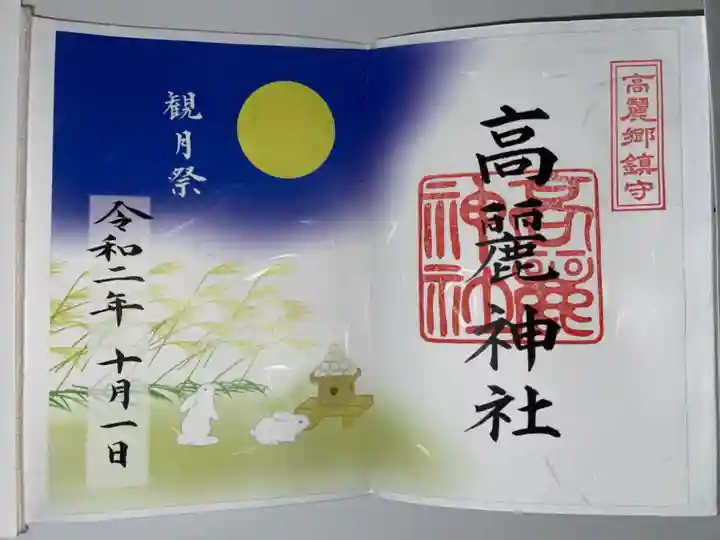 高麗郷鎮守
高麗神社
高麗
神社
観月祭
令和二年 十月一日